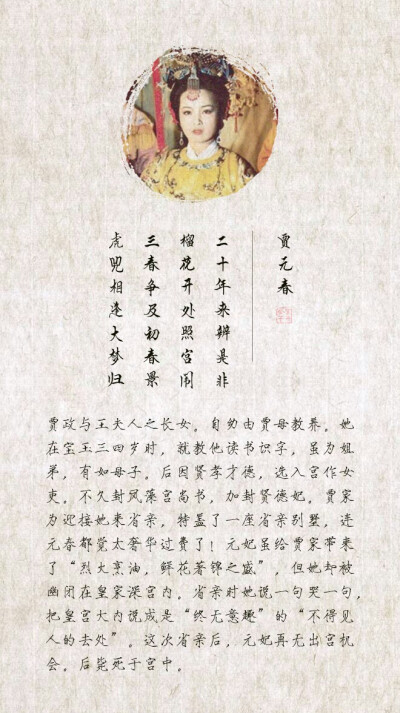 贾元春
二十年来辨是非
榴花开处照宫闱
三春争及初春景
虎兕相逢大梦归
贾政与王夫人之长女。自幼由贾母教养。她
在宝玉三四岁时，就教他读书识字，虽为姐
弟，有如母子。后因贤孝才德，选入宫作女
吏。不久封凤藻宫尚书，加封贤德妃。贾家
为迎接她来省亲，特盖了一座省亲别墅，连
元春都觉太奢华过费了！元妃虽给贾家带来
了“烈火烹油，鲜花著锦之盛”，但她却被
幽闭在皇家深宫内。省亲时她说一句哭一句，
把皇宫大内说成是“终无意趣”的“不得见
人的去处”。这次省亲后，元妃再无出宫机
会。后毙死于宫中。